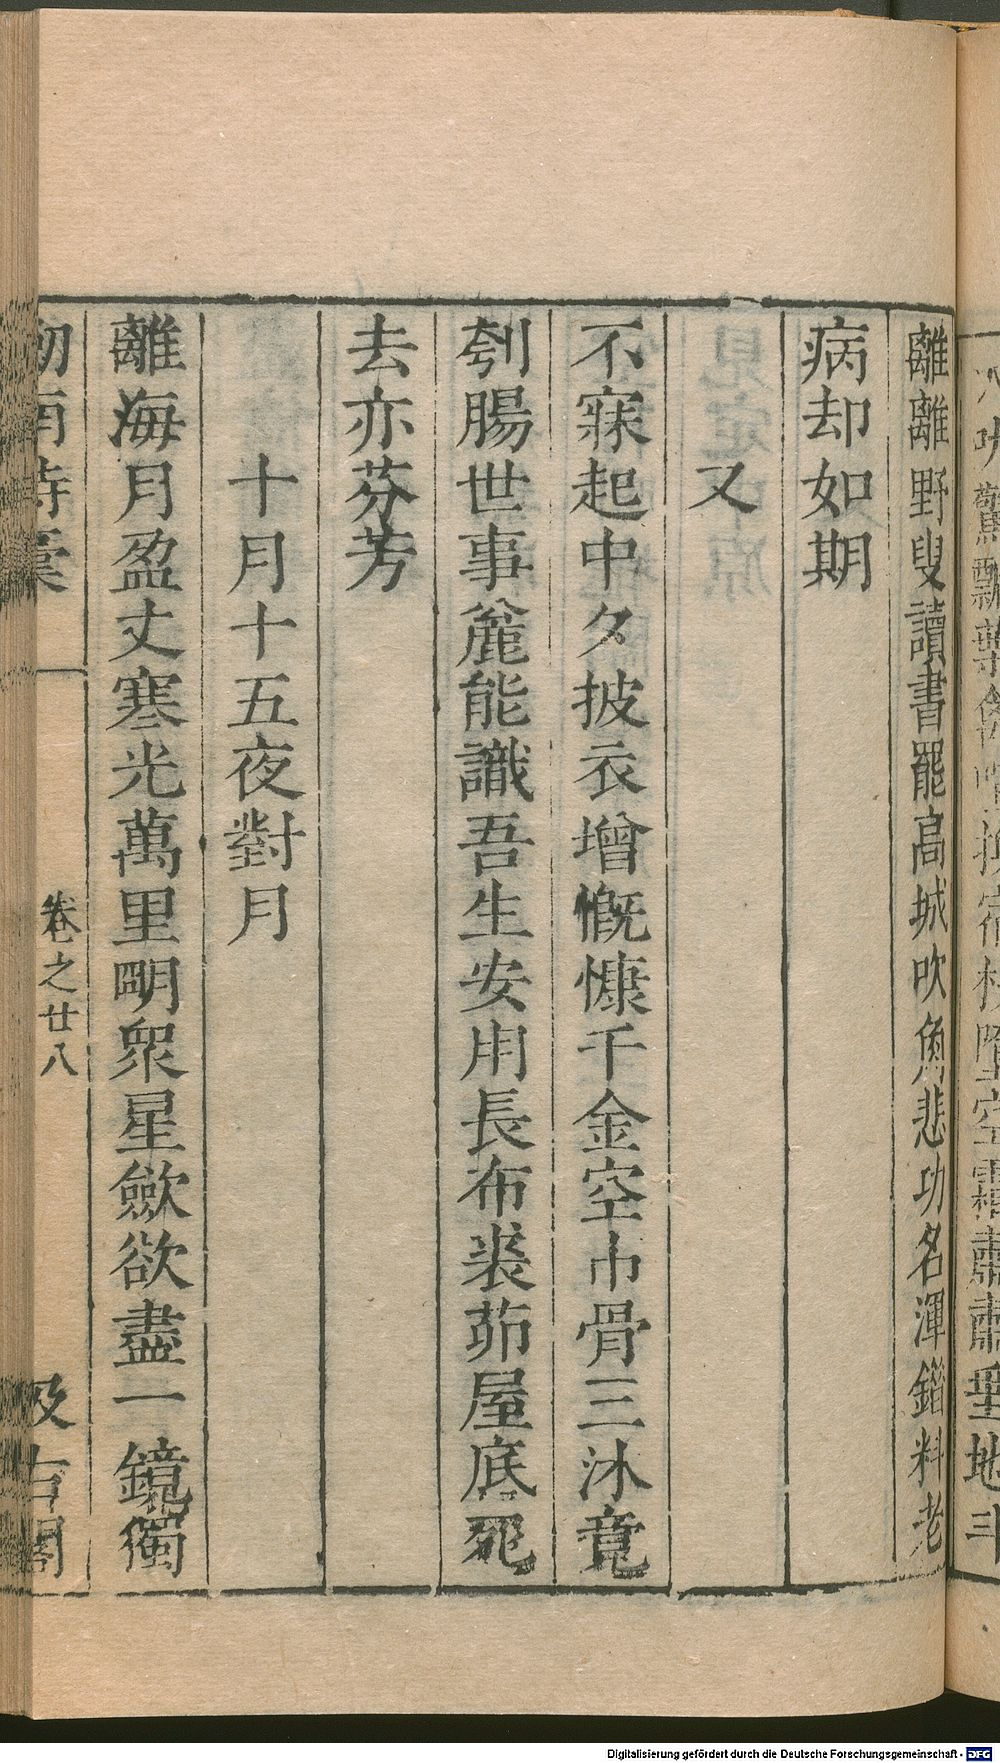 離離野叟讀書罷高城吹角悲功名渾錯料老
病却如期
又
不寐起中夕披衣增慨慷千金空巾骨三沐竟
刳腸世事麄能識吾生安用長布裘茆屋底死
去亦芬芳
十月十五夜對月
離海月盈丈寒光萬里明衆星斂欲盡一鏡獨
劒南詩稾
卷之廿八
汲古閣
Digitalisierung gefördert durch die Deutsche Forschungsgemeinschaft - DFG